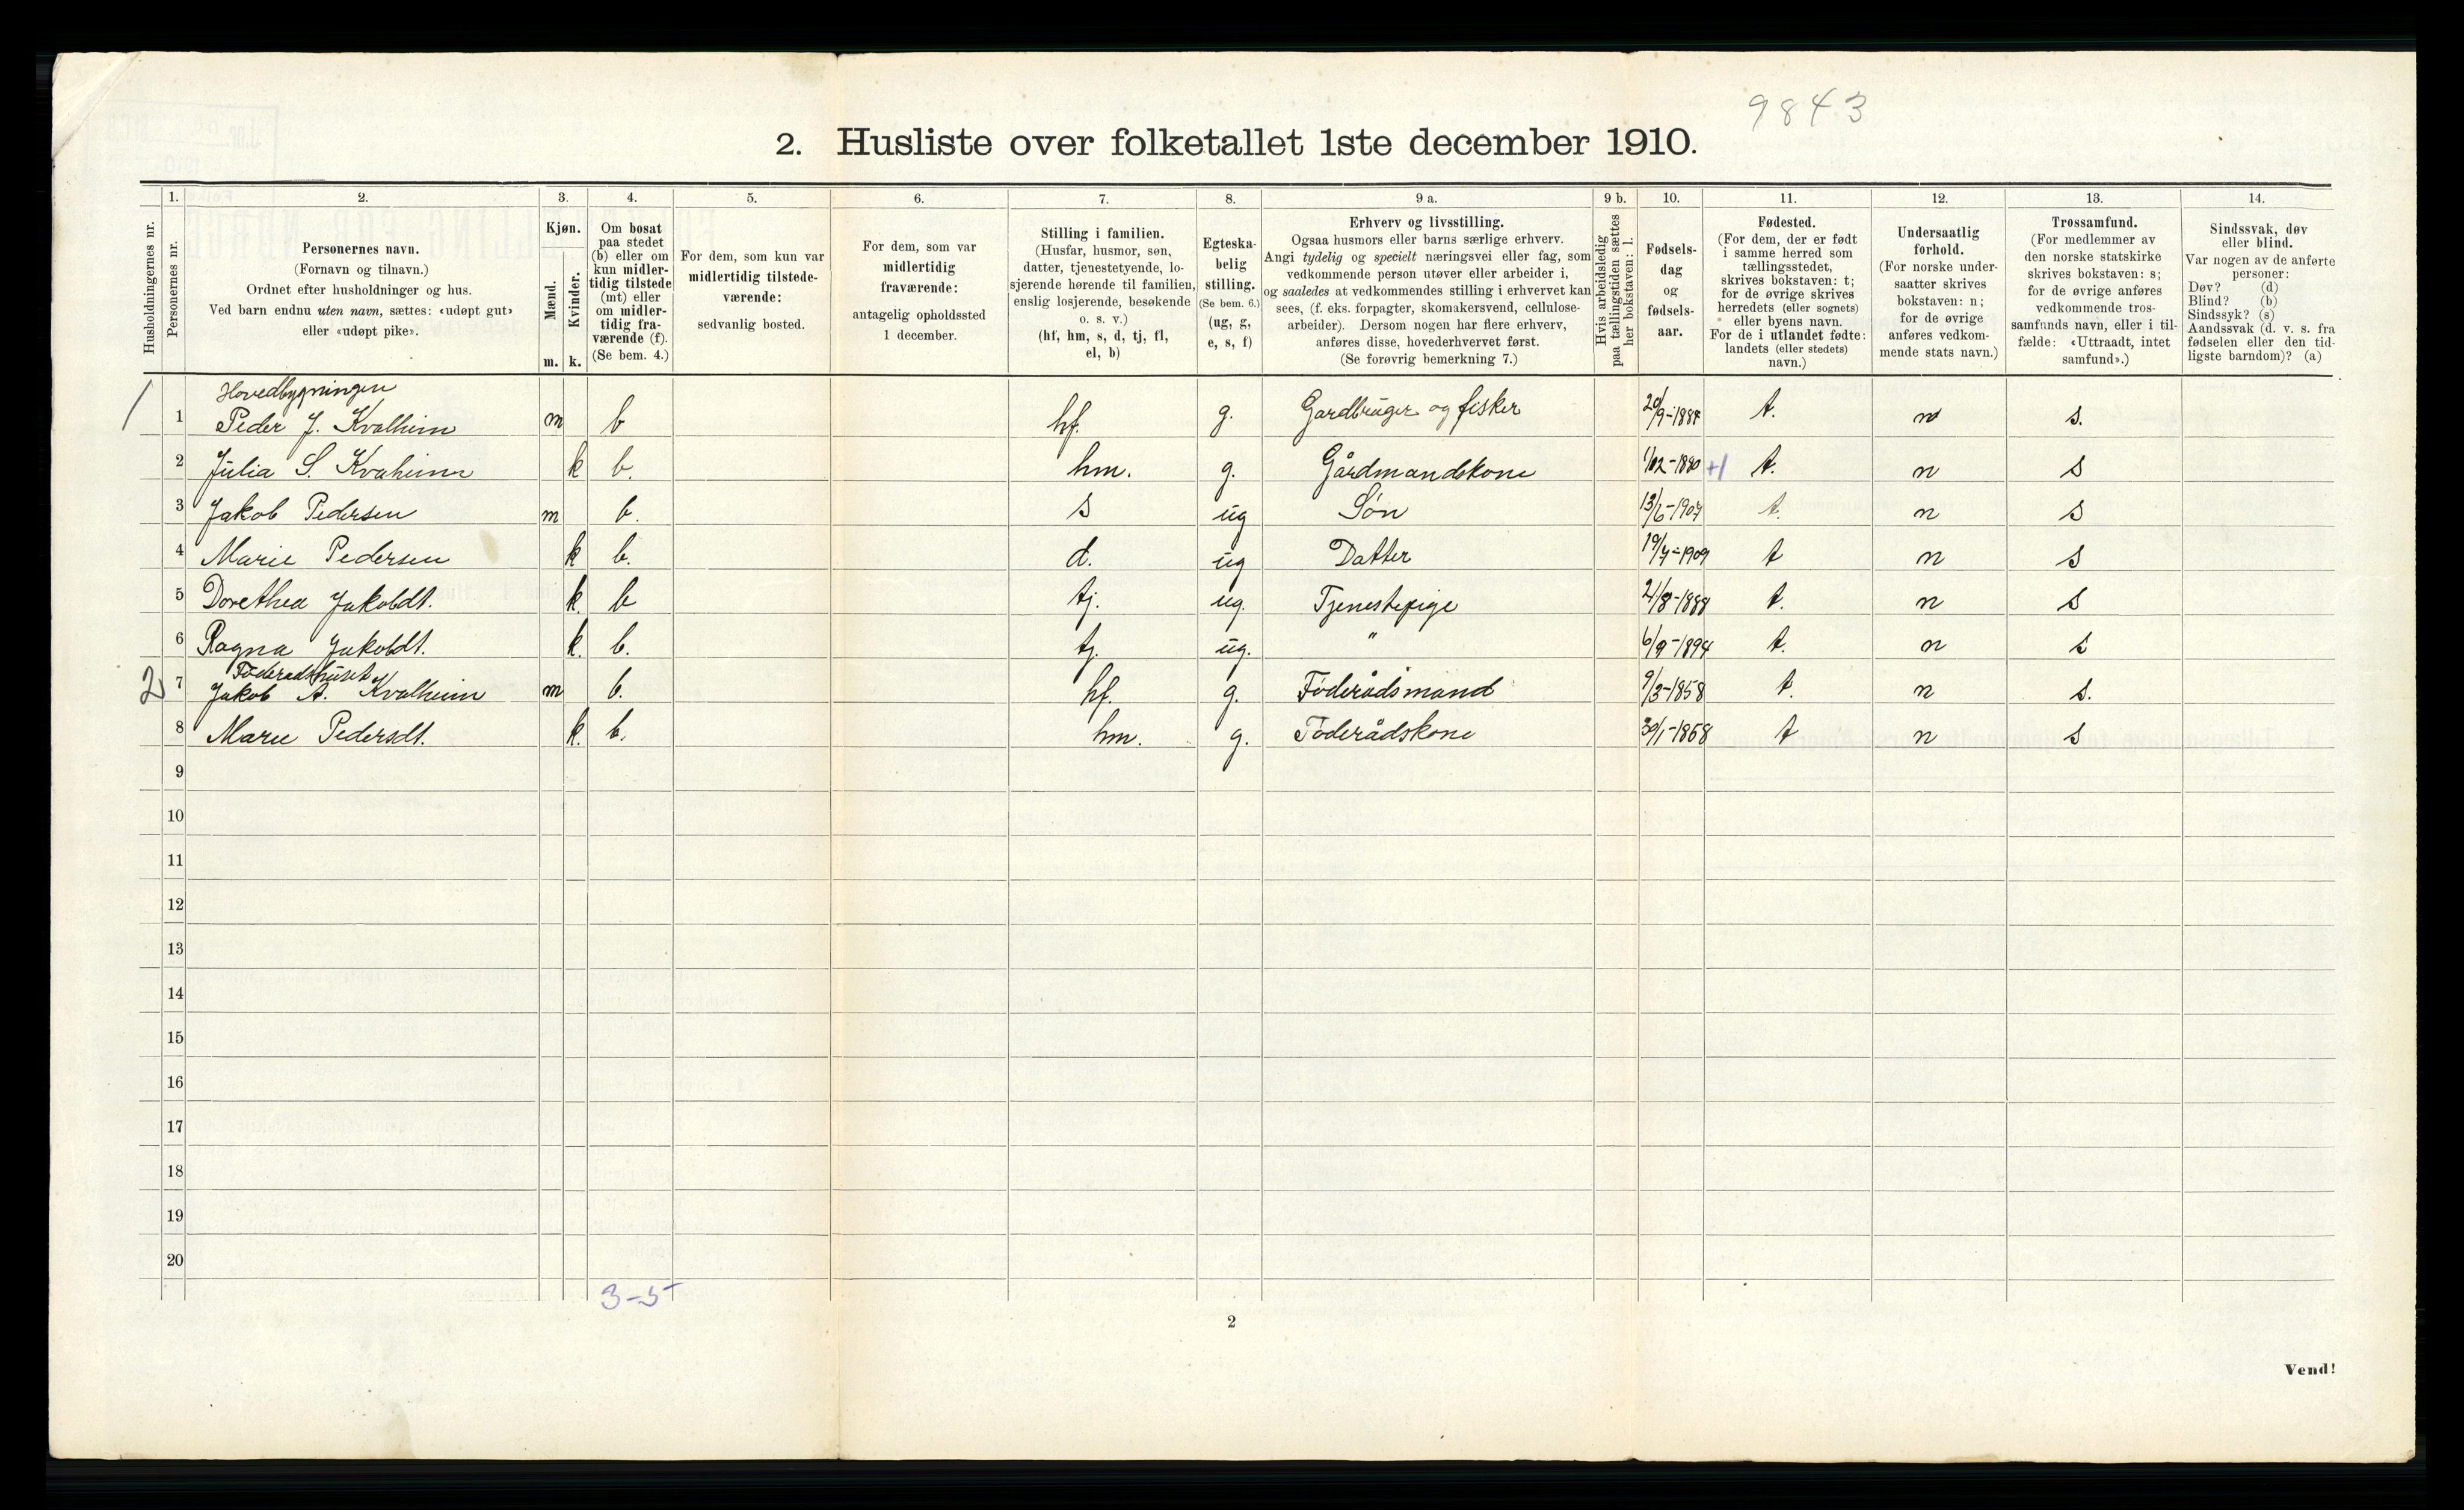 9843
2. Husliste over folketallet 1ste december 1910.
Husholdningernes nr.
1.
Personernes nr.
2.
Personernes navn.
(Fornavn og tilnavn.)
Ordnet efter husholdninger og hus.
Ved barn endnu uten navn, sættes: «udøpt gut»
eller «udøpt pike».
3.
Kjøn.
Mænd.
m.
Kvinder.
k.
4.
Om bosat
paa stedet
(b) eller om
kun midler-
tidig tilstede
(mt) eller
om midler-
tidig fra-
værende (f).
(Se bem. 4.)
5.
For dem, som kun var
midlertidig tilstede-
værende:
sedvanlig bosted.
6.
For dem, som var
midlertidig
fraværende:
antagelig opholdssted
1 december.
7.
Stilling i familien.
(Husfar, husmor, søn,
datter, tjenestetyende, lo-
sjerende hørende til familien,
enslig losjerende, besøkende
o. s. v.)
(hf, hm, s, d, tj, fl,
el, b)
8.
Egteska-
belig
stilling.
(Se bem. 6.)
(ug, g,
e, s, f)
9 a.
Erhverv og livsstilling.
Ogsaa husmors eller barns særlige erhverv.
Angi tydelig og specielt næringsvei eller fag, som
vedkommende person utøver eller arbeider i,
og saaledes at vedkommendes stilling i erhvervet kan
sees, (f. eks. forpagter, skomakersvend, cellulose-
arbeider). Dersom nogen har flere erhverv,
anføres disse, hovederhvervet først.
(Se forøvrig bemerkning 7.)
9 b.
Hvis arbeidsledig
paa tællingstiden sættes
her bokstaven: l.
10.
Fødsels-
dag
og
fødsels-
aar.
11.
Fødested.
(For dem, der er født
i samme herred som
tællingsstedet,
skrives bokstaven: t;
for de øvrige skrives
herredets (eller sognets)
eller byens navn.
For de i utlandet fødte:
landets (eller stedets)
navn.)
12.
Undersaatlig
forhold.
(For norske under-
saatter skrives
bokstaven: n;
for de øvrige
anføres vedkom-
mende stats navn.)
13.
Trossamfund.
(For medlemmer av
den norske statskirke
skrives bokstaven: s;
for de øvrige anføres
vedkommende tros-
samfunds navn, eller i til-
fælde: «Uttraadt, intet
samfund».)
14.
Sindssvak, døv
eller blind.
Var nogen av de anførte
personer:
Døv? (d)
Blind? (b)
Sindssyk? (s)
Aandssvak (d. v. s. fra
fødselen eller den tid-
ligste barndom)? (a)
Hovedbygningen
1 1 Peder J. Kvalheim m b hf. g. Gardbruger og fisker 20/9-1884 t. n s.
2 Julia S. Kvaheim k b. hm. g. Gårdmandskone 1/12-1880 +1 t. n s
3 Jakob Pedersen m b. s ug Søn 13/6-1907 t. n s
4 Marie Pedersen k b. d. ug Datter 19/7-1909 t n s
5 Dorethea Jakobdt. k. b tj. ug. Tjenestepige 21/8-1888 t. n s
6 Ragna Jakobdt. k. b. tj. ug. " 6/9-1894 t. n s
Føderådshuset
2 7 Jakob A. Kvalheim m b. hf. g. Føderådsmand 9/3-1858 t. n s.
8 Marie Pedersdt. k. b. hm. g. Føderådskone 30/1-1858 t n s
9
10
11
12
13
14
15
16
17
18
19
20
3-5
2
Vend!